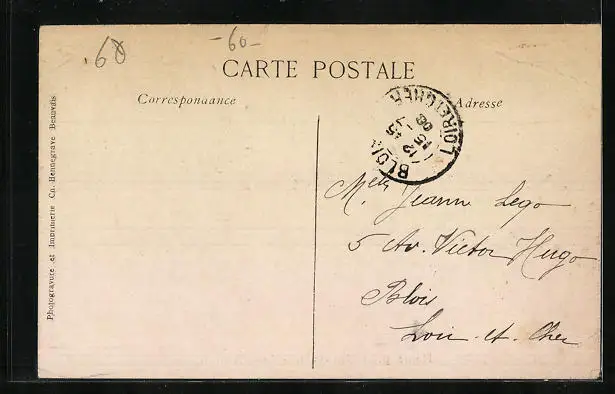 60
-60-
CARTE POSTALE
Correspondance
Adresse
Photogravure et Imprimerie Ch. Hennegrave Beauvais
BLOIS
LOIR-ET-CHER
12 45
15
06
Melle Jeanne Lego
5 Av. Victor Hugo
Blois
Loir-et-Cher